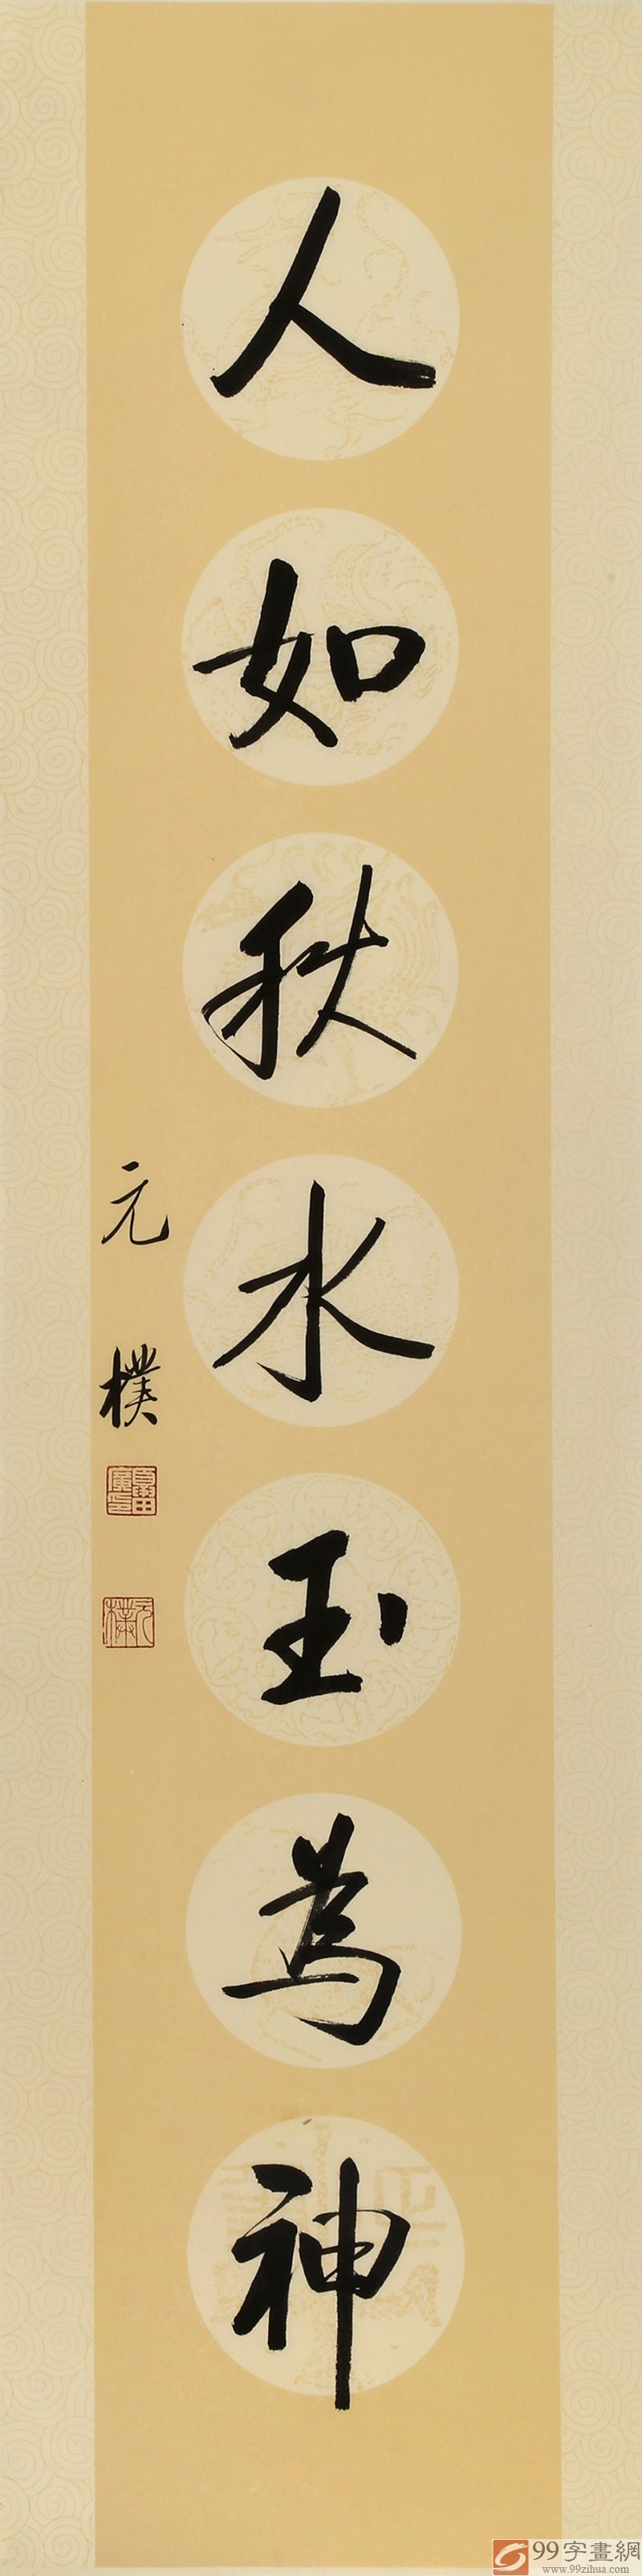 人如秋水玉為神
元樸
元樸
99字畫網
www.99zihua.com